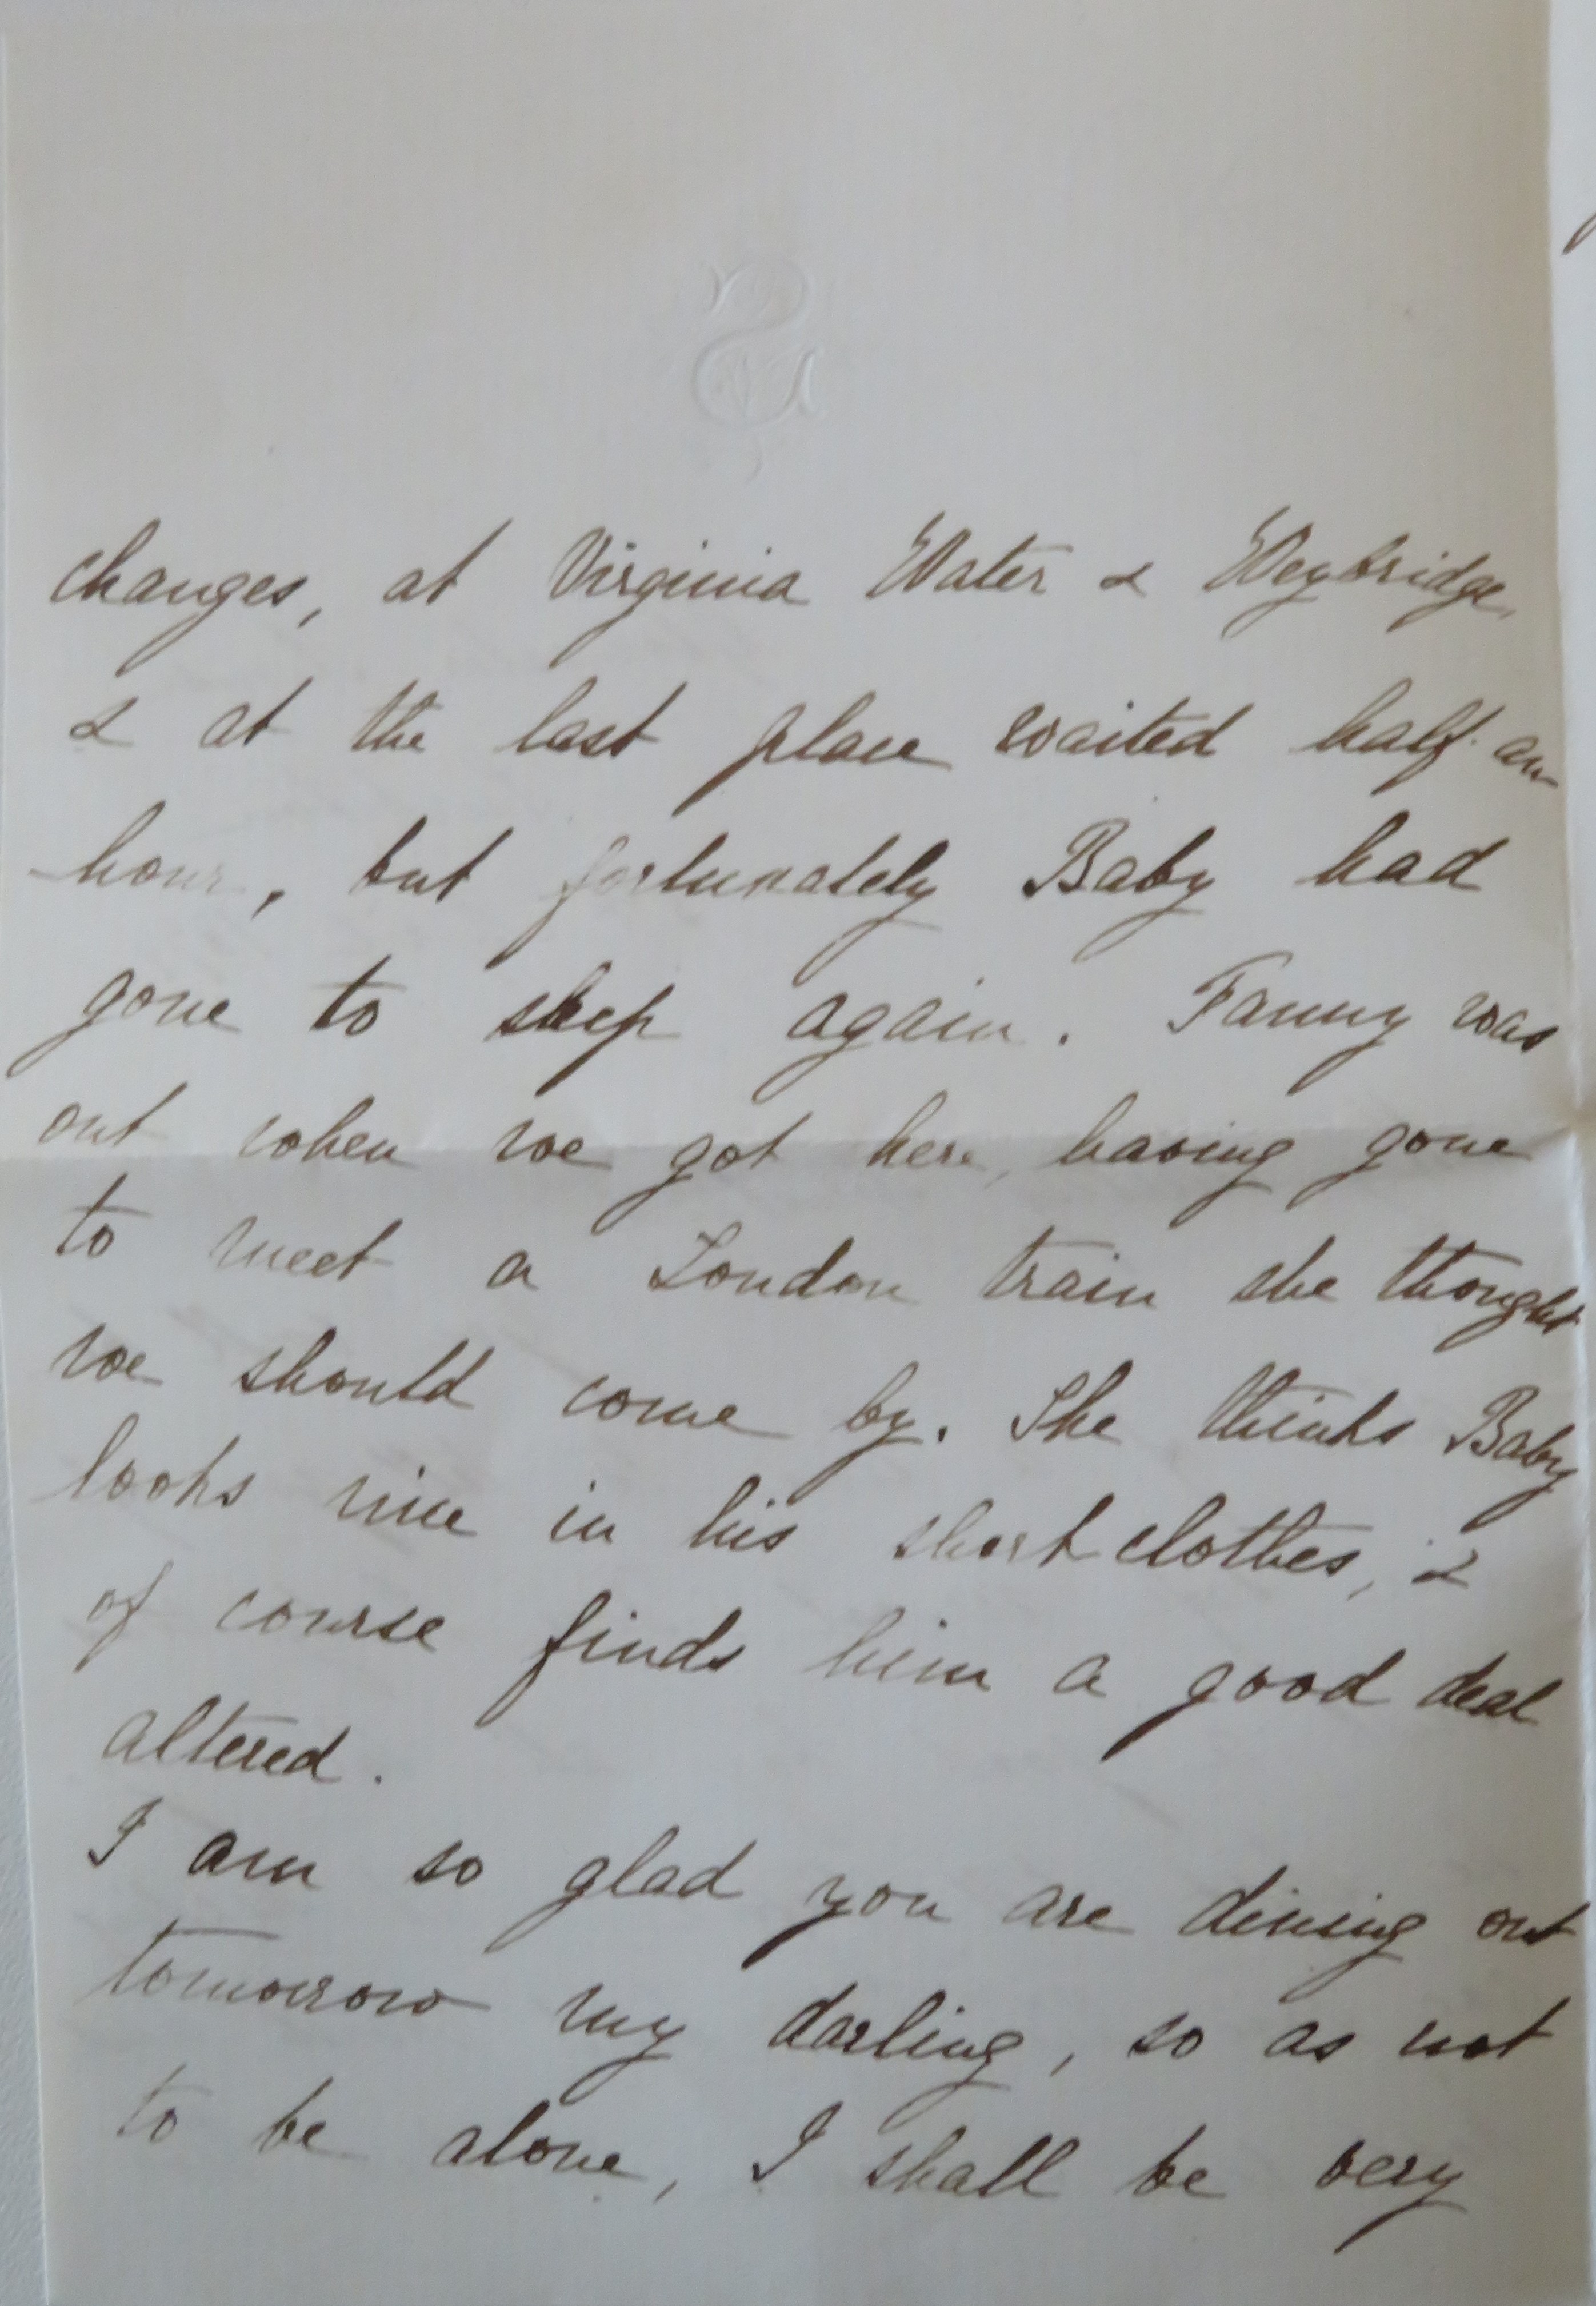 changes, at Virginia Water & Weybridge,
& at the last place waited half an
hour, but fortunately Baby had
gone to sleep again. Fanny was
out when we got here, having gone
to meet a London train she thought
we should come by. She thinks Baby
looks nice in his short clothes, &
of course finds him a good deal
altered.
I am so glad you are dining out
tomorrow my darling, so as not
to be alone, I shall be very